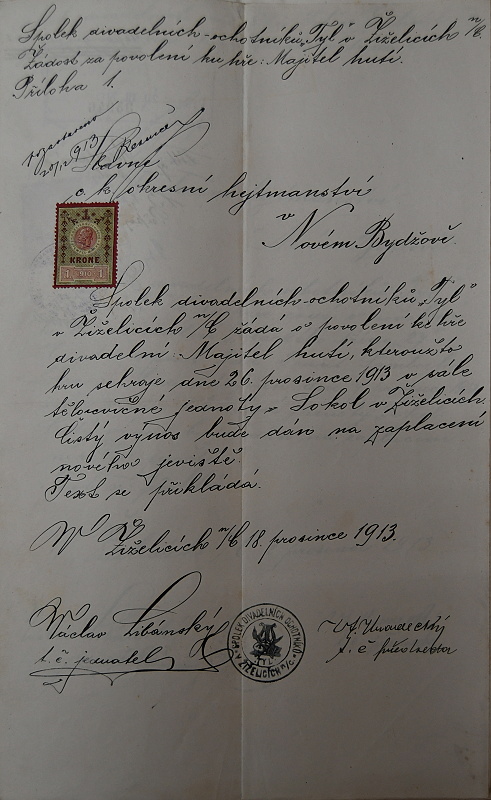 Spolek divadelních ochotníků „Tyl" v Žiželicích n/C.
Žádost za povolení ku hře: Majitel hutí.
Příloha 1.
20/12 1913
Slavné
c. k. okresní hejtmanství
v
Novém Bydžově.
1
KRONE
1 1910 1
Spolek divadelních-ochotníků „Tyl"
v Žiželicích n/C žádá o povolení ke hře
divadelní Majitel hutí, kteroužto
hru sehraje dne 26. prosince 1913 v sále
tělocvičné jednoty „Sokol" v Žiželicích.
Čistý výnos bude dán na zaplacení
nového jeviště.
Text se přikládá.
V Žiželicích n/C 18. prosince 1913.
Václav Libánský
t. č. jednatel
SPOLEK DIVADELNÍCH OCHOTNÍKŮ
TYL
V ŽIŽELICÍCH N/C.
t. č.